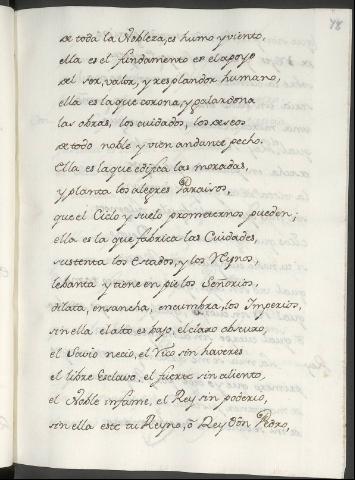 78
de toda la Nobleza, es humo y viento,
ella es el fundamento en el apoyo
del ser, valor, y resplandor humano,
ella es la que corona, y galardona
las obras, los cuidados, los deseos
de todo noble y vien andante pecho.
Ella es la que edifica las moradas,
y planta los alegres Paraisos,
que el Cielo y suelo prometernos pueden;
ella es la que fabrica las Cuidades,
sustenta los Estados, y los Reynos,
lebanta y tiene en pie los Señorios,
dilata, ensancha, encumbra, los Imperios,
sin ella el alto es bajo, el claro obscuro,
el Savio necio, el Rico sin haveres
el libre Esclavo, el fuerte sin aliento,
el Noble infame, el Rey sin poderio,
sin ella este tu Reyno, ô Rey Dôn Pedro,